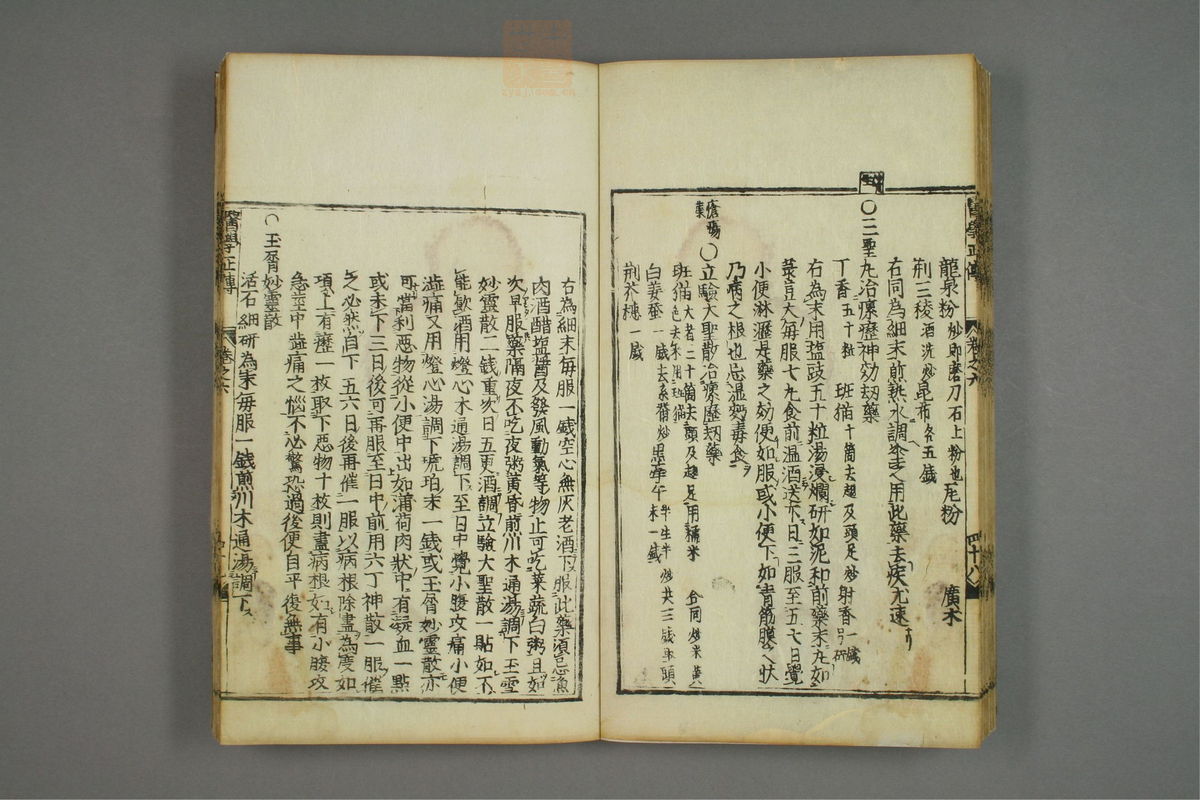 龍泉粉 炒即磨刀石上粉也 瓦粉 廣木
荆三稜 酒洗炒 昆布 各五錢
右同為細末煎熱水調塗之用此藥去疾尤速
〇三聖丸治瘰癧神効刼藥
丁香 五十粒 班猫 十箇去翅及頭足炒 射香 一錢另研
右為末用塩豉五十粒湯浸爛研如泥和前藥末丸如
菉豆大毎服七丸食前温酒送下日三服至五七日覺
小便淋瀝是藥之効便如服或小便下如青筋膜之状
乃病之根也忌温麪毒食
瘡瘍
〇立驗大聖散治瘰癧刼藥
班猫 大者二十箇去頭及翅足用糯米
白姜蚕 一錢去系觜炒 黒牽牛
荆芥穗 一錢
醫學正傳 卷之六 四十八
右為細末毎服一錢空心無灰老酒下服此藥須忌魚
肉酒醋塩醤及發風動氣等物止可吃菜蔬白粥且如
次早服藥隔夜不吃夜粥黄昏煎川木通湯調下玉
妙靈散二錢重次日五更酒調立驗大聖散一貼如不
能飲酒用燈心木通湯調下至日中覺小腹攻痛小便
澁痛又用燈心湯調下琥珀末一錢或玉胥妙靈散亦
可當利惡物從小便中出如蒲荷肉状中有凝血一點
或未下三日後可再服至日中前用六丁神散一服催
之必然自下五六日後再催一服以病根除盡為度如
項上有癧一枚取下惡物十枚則盡病根如有小腹攻
急莖中澁痛之惱不必驚恐過後便自平復無事
〇玉胥妙靈散
活石 細研為末毎服一錢煎川木通湯調下
醫學正傳 卷之六